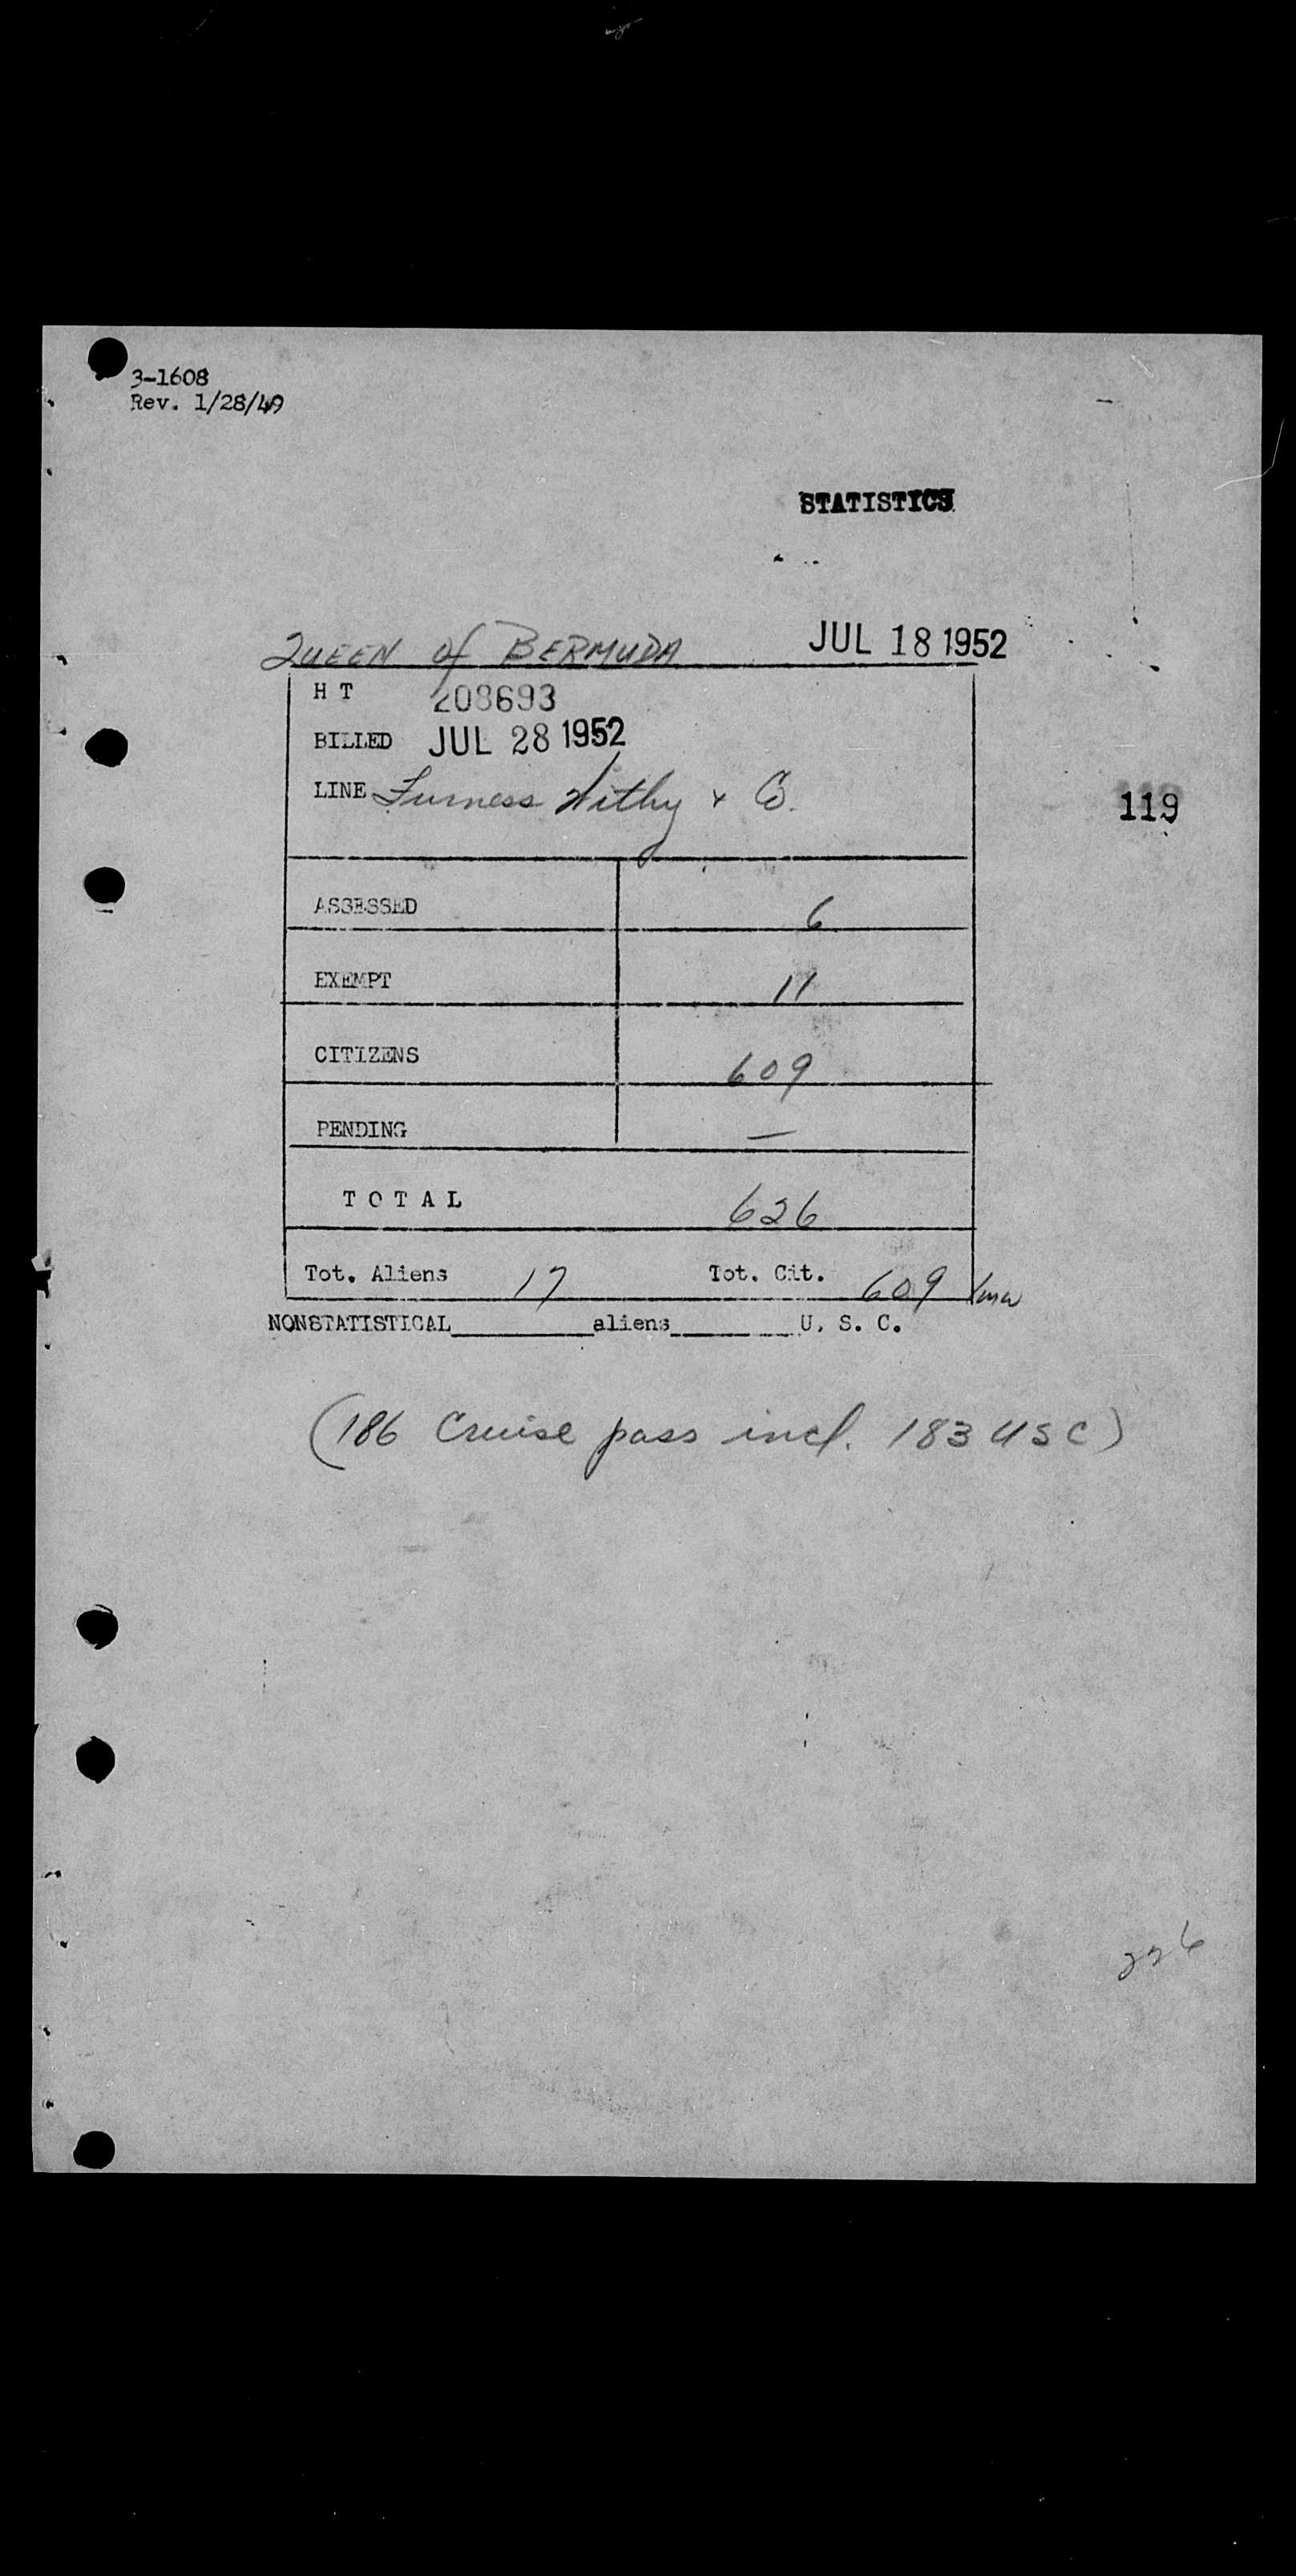 3-1608
Rev. 1/28/49
STATISTICS
QUEEN of BERMUDA JUL 18 1952
H T 208693
BILLED JUL 28 1952
LINE Furness Withy & Co.
119
ASSESSED 6
EXEMPT 11
CITIZENS 609
PENDING —
TOTAL 626
Tot. Aliens 17 Tot. Cit. 609
NONSTATISTICAL aliens U. S. C.
(186 Cruise pass incl. 183 USC)
226